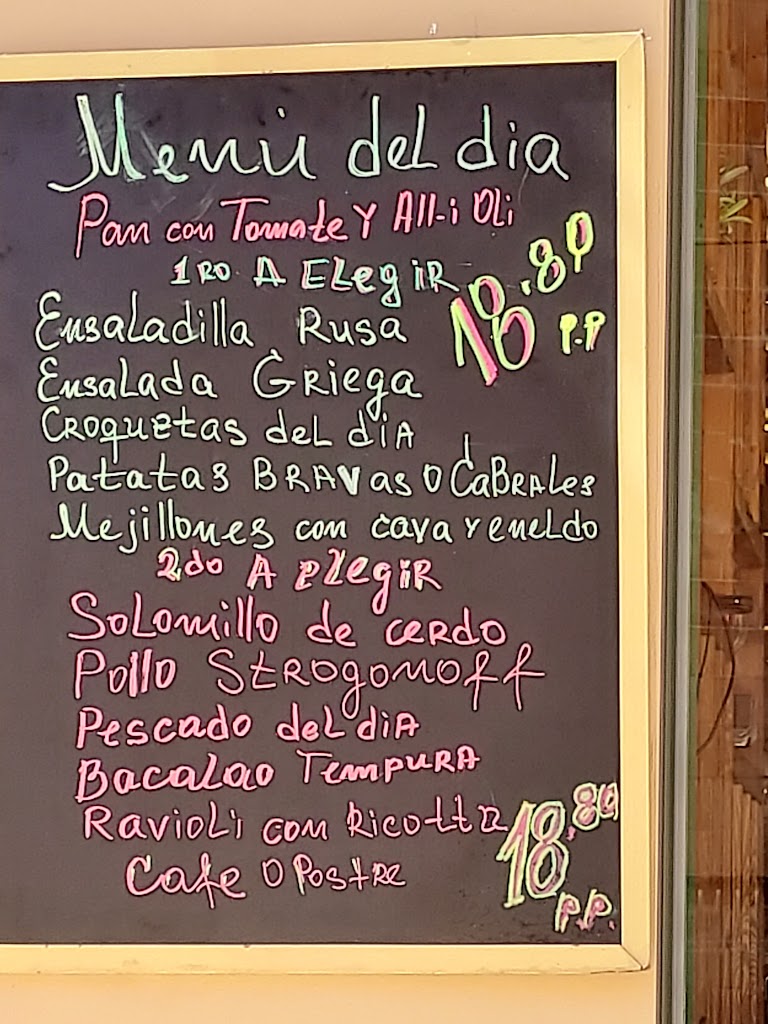 Menú del dia
Pan con Tomate Y All-i Oli
1RO A ELegiR
18.80
P.P
Ensaladilla Rusa
Ensalada Griega
Croquetas del dia
Patatas BRAVas o CaBRALes
Mejillones con cava y eneldo
2do A elegiR
Solomillo de cerdo
Pollo Strogonoff
Pescado del dia
Bacalao Tempura
Ravioli con Ricotta
18.80
P.P.
Cafe o Postre